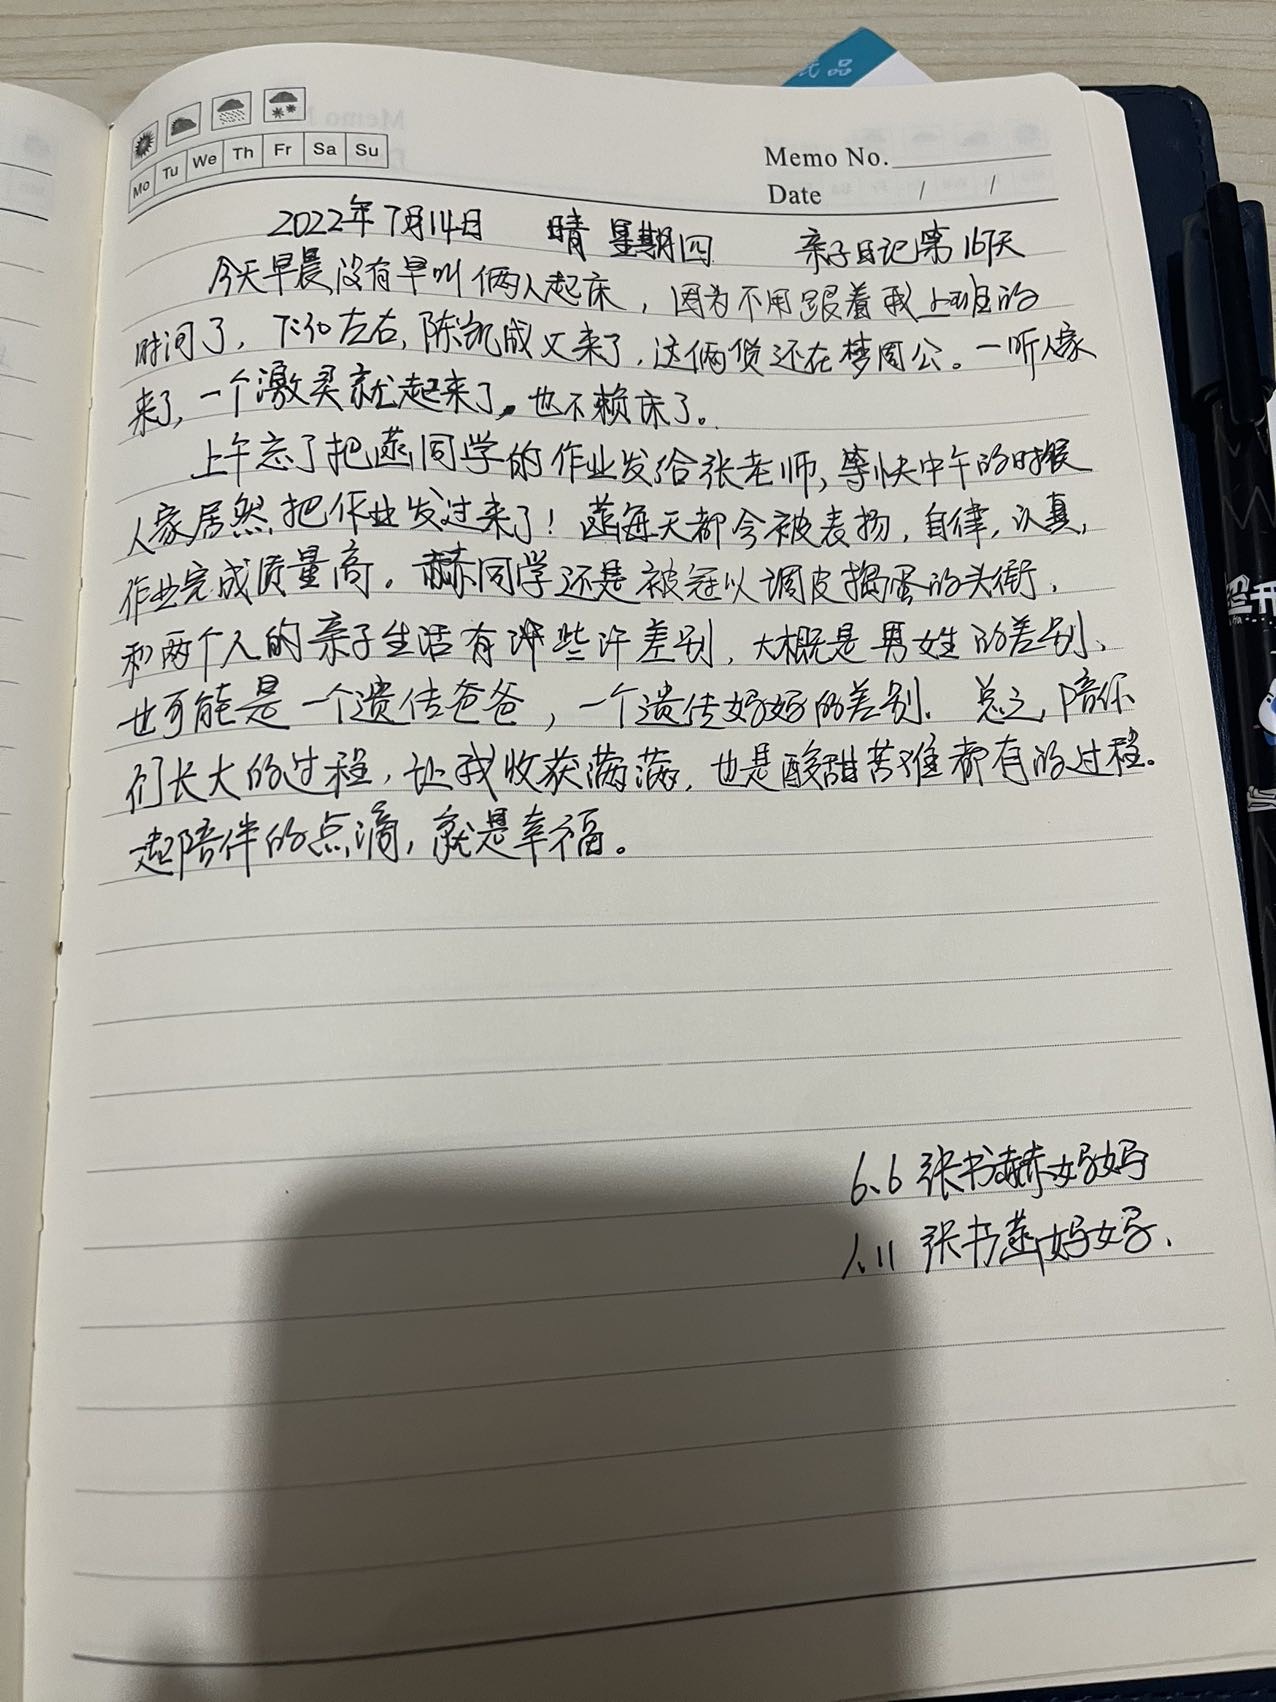 氏品
Mo Tu We Th Fr Sa Su
Memo No.
Date / /
2022年7月14日 晴 星期四 亲子日记第167天
今天早晨没有早叫俩人起床，因为不用跟着我上班的
时间了，下10左右，陈凯成又来了，这俩货还在梦周公。一听人家
来了，一个激灵就起来了，也不赖床了。
上午忘了把菡同学的作业发给张老师，等快中午的时候
人家居然把作业发过来了！菡每天都会被表扬，自律，认真，
作业完成质量高。赫同学还是被冠以调皮捣蛋的头衔，
和两个人的亲子生活有许些许差别，大概是男女性的差别、
也可能是一个遗传爸爸，一个遗传妈妈的差别。总之，陪你
们长大的过程，让我收获满满，也是酸甜苦难都有的过程。
一起陪伴的点滴，就是幸福。
6.6 张书赫妈妈
1.11 张书菡妈妈.